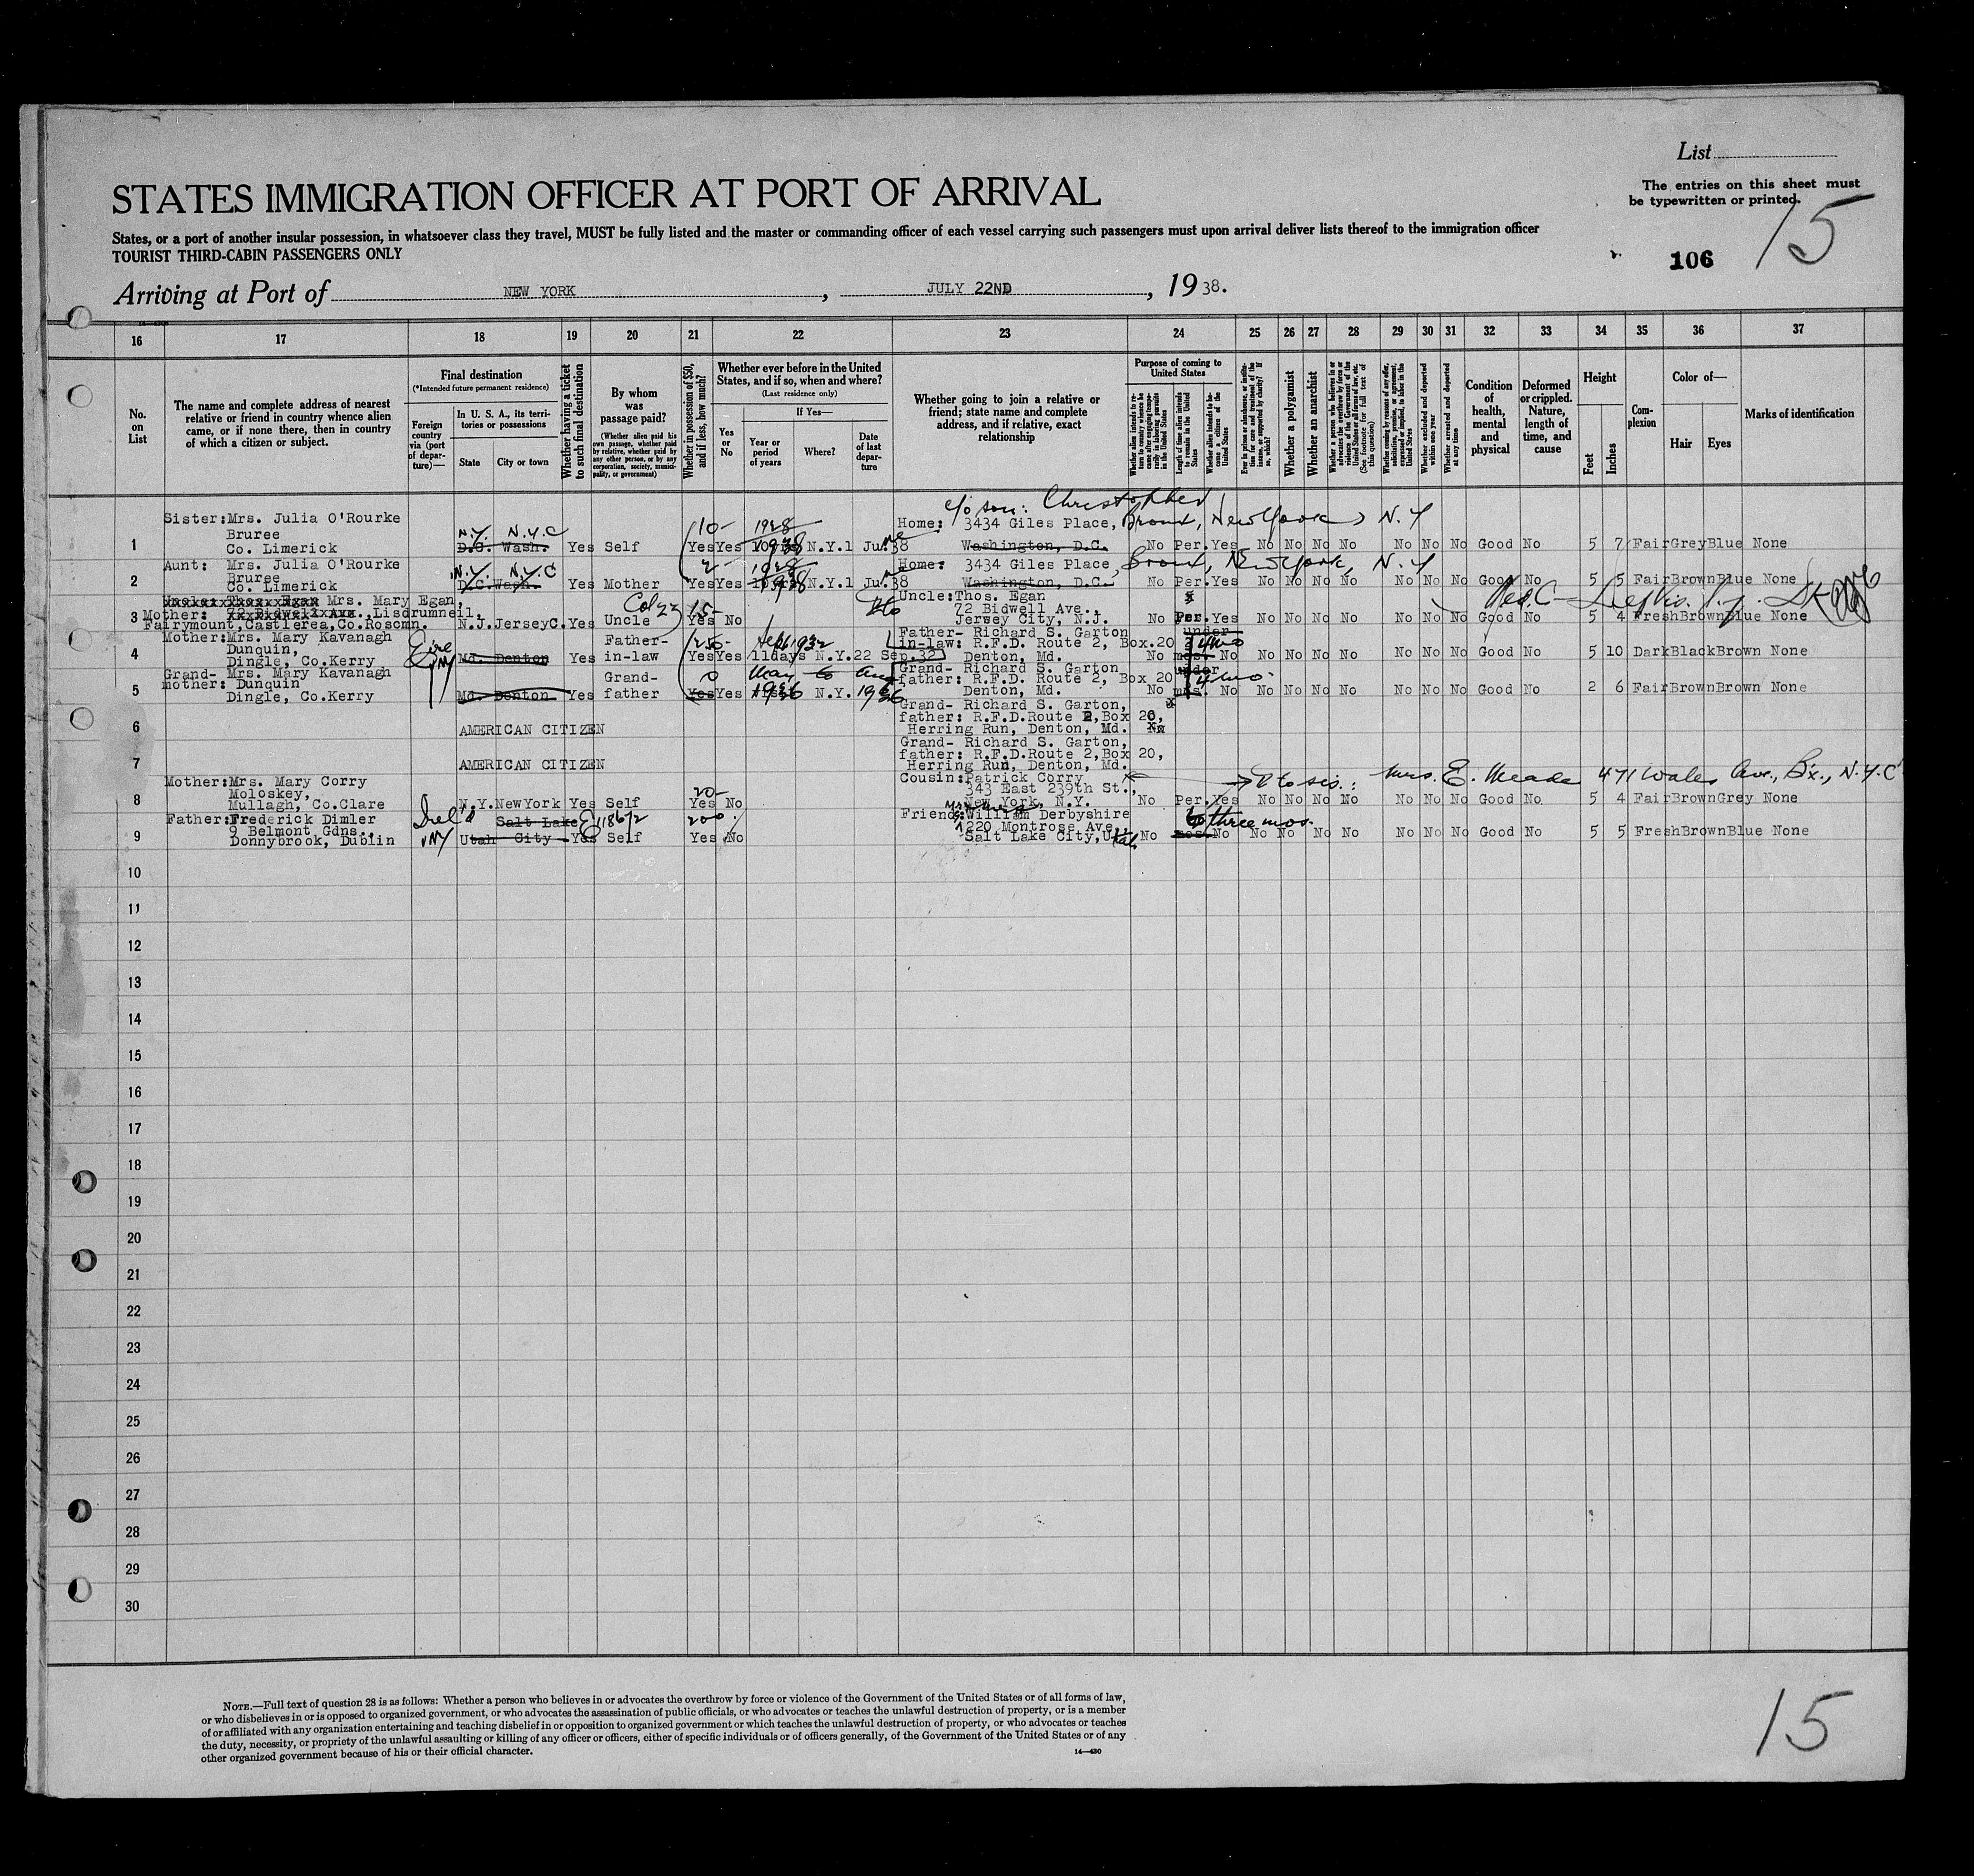 List
The entries on this sheet must
be typewritten or printed.
15
106
STATES IMMIGRATION OFFICER AT PORT OF ARRIVAL
States, or a port of another insular possession, in whatsoever class they travel, MUST be fully listed and the master or commanding officer of each vessel carrying such passengers must upon arrival deliver lists thereof to the immigration officer
TOURIST THIRD-CABIN PASSENGERS ONLY
Arriving at Port of NEW YORK, JULY 22ND, 1938.
16 17 18 19 20 21 22 23 24 25 26 27 28 29 30 31 32 33 34 35 36 37
No. on List
The name and complete address of nearest relative or friend in country whence alien came, or if none there, then in country of which a citizen or subject.
Final destination
(*Intended future permanent residence)
Foreign country via (port of departure)—
In U. S. A., its territories or possessions
State
City or town
Whether having a ticket to such final destination
By whom was passage paid?
(Whether alien paid his own passage, whether paid by relative, whether paid by any other person, or by any corporation, society, municipality, or government)
Whether in possession of $50, and if less, how much?
Whether ever before in the United States, and if so, when and where?
(Last residence only)
Yes or No
If Yes—
Year or period of years
Where?
Date of last departure
Whether going to join a relative or friend; state name and complete address, and if relative, exact relationship
Purpose of coming to United States
Length of time alien intends to remain in the United States
Whether alien intends to become a citizen of the United States
Whether a polygamist
Whether an anarchist
Whether excluded and deported within one year
Whether arrested and deported at any time
Condition of health, mental and physical
Deformed or crippled. Nature, length of time, and cause
Height
Feet
Inches
Complexion
Color of—
Hair
Eyes
Marks of identification
c/o son: Christopher
Sister: Mrs. Julia O'Rourke
Bruree
Co. Limerick
N.Y. N.Y.C
D.C. Wash.
1 Yes Self 10- Yes Yes 1928 1938 N.Y. 1 June 38
Home: 3434 Giles Place, Bronx, New York, N.Y
Washington, D.C.
No Per. Yes No No No No No No No Good No 5 7 Fair Grey Blue None
Aunt: Mrs. Julia O'Rourke
Bruree
Co. Limerick
N.Y. N.Y.C
D.C. Wash.
2 Yes Mother 2- Yes Yes 1928 1938 N.Y. 1 Ju. 38
Home: 3434 Giles Place, Bronx, New York, N.Y
Washington, D.C.
No Per. Yes No No No No No No No Good No 5 5 Fair Brown Blue None
Mrs. Mary Egan,
Mother: Lisdrumneil,
Fairymount, Castlerea, Co. Roscmn.
3 N.J. Jersey C. Yes Uncle Col 23 15- Yes No
Uncle: Thos. Egan
72 Bidwell Ave.,
Jersey City, N.J.
No Per. Yes No No No No No No No Good No 5 4 Fresh Brown Blue None
Mother: Mrs. Mary Kavanagh
Dunquin,
Dingle, Co. Kerry
Eire
4 Md. Denton Yes Father-in-law 250- Yes Yes Sept 1932 11 days N.Y. 22 Sep. 32
Father- Richard S. Garton
in-law: R.F.D. Route 2, Box. 20
Denton, Md.
under 4 mo
No mos. No No No No No No No No Good No 5 10 Dark Black Brown None
Grand- Mrs. Mary Kavanagh
mother: Dunquin
Dingle, Co. Kerry
5 Md. Denton Yes Grand-father 0 Yes Yes May to Aug 1936 N.Y. 1936
Grand- Richard S. Garton
father: R.F.D. Route 2, Box 20
Denton, Md.
under 4 mo.
No mos. No No No No No No No No Good No 2 6 Fair Brown Brown None
6 AMERICAN CITIZEN
Grand- Richard S. Garton,
father: R.F.D. Route 2, Box 20,
Herring Run, Denton, Md.
7 AMERICAN CITIZEN
Grand- Richard S. Garton,
father: R.F.D. Route 2, Box 20,
Herring Run, Denton, Md.
Mother: Mrs. Mary Corry
Moloskey,
Mullagh, Co. Clare
8 N.Y. New York Yes Self 20- Yes No
Cousin: Patrick Corry
343 East 239th St.,
New York, N.Y.
to sis.: Mrs. E. Meade 471 Wales Ave., Bx., N.Y.C
No Per. Yes No No No No No No No Good No 5 4 Fair Brown Grey None
Father: Frederick Dimler
9 Belmont Gdns.,
Donnybrook, Dublin
9 Utah Salt Lake City Yes Self 200. Yes No
Friend: William Derbyshire
1220 Montrose Ave.
Salt Lake City, Utah
three mos.
No mos. No No No No No No No No Good No 5 5 Fresh Brown Blue None
10
11
12
13
14
15
16
17
18
19
20
21
22
23
24
25
26
27
28
29
30
NOTE.—Full text of question 28 is as follows: Whether a person who believes in or advocates the overthrow by force or violence of the Government of the United States or of all forms of law,
or who disbelieves in or is opposed to organized government, or who advocates the assassination of public officials, or who advocates or teaches the unlawful destruction of property, or is a member
of or affiliated with any organization entertaining and teaching disbelief in or opposition to organized government or which teaches the unlawful destruction of property, or who advocates or teaches
the duty, necessity, or propriety of the unlawful assaulting or killing of any officer or officers, either of specific individuals or of officers generally, of the Government of the United States or of any
other organized government because of his or their official character.
14—430
15